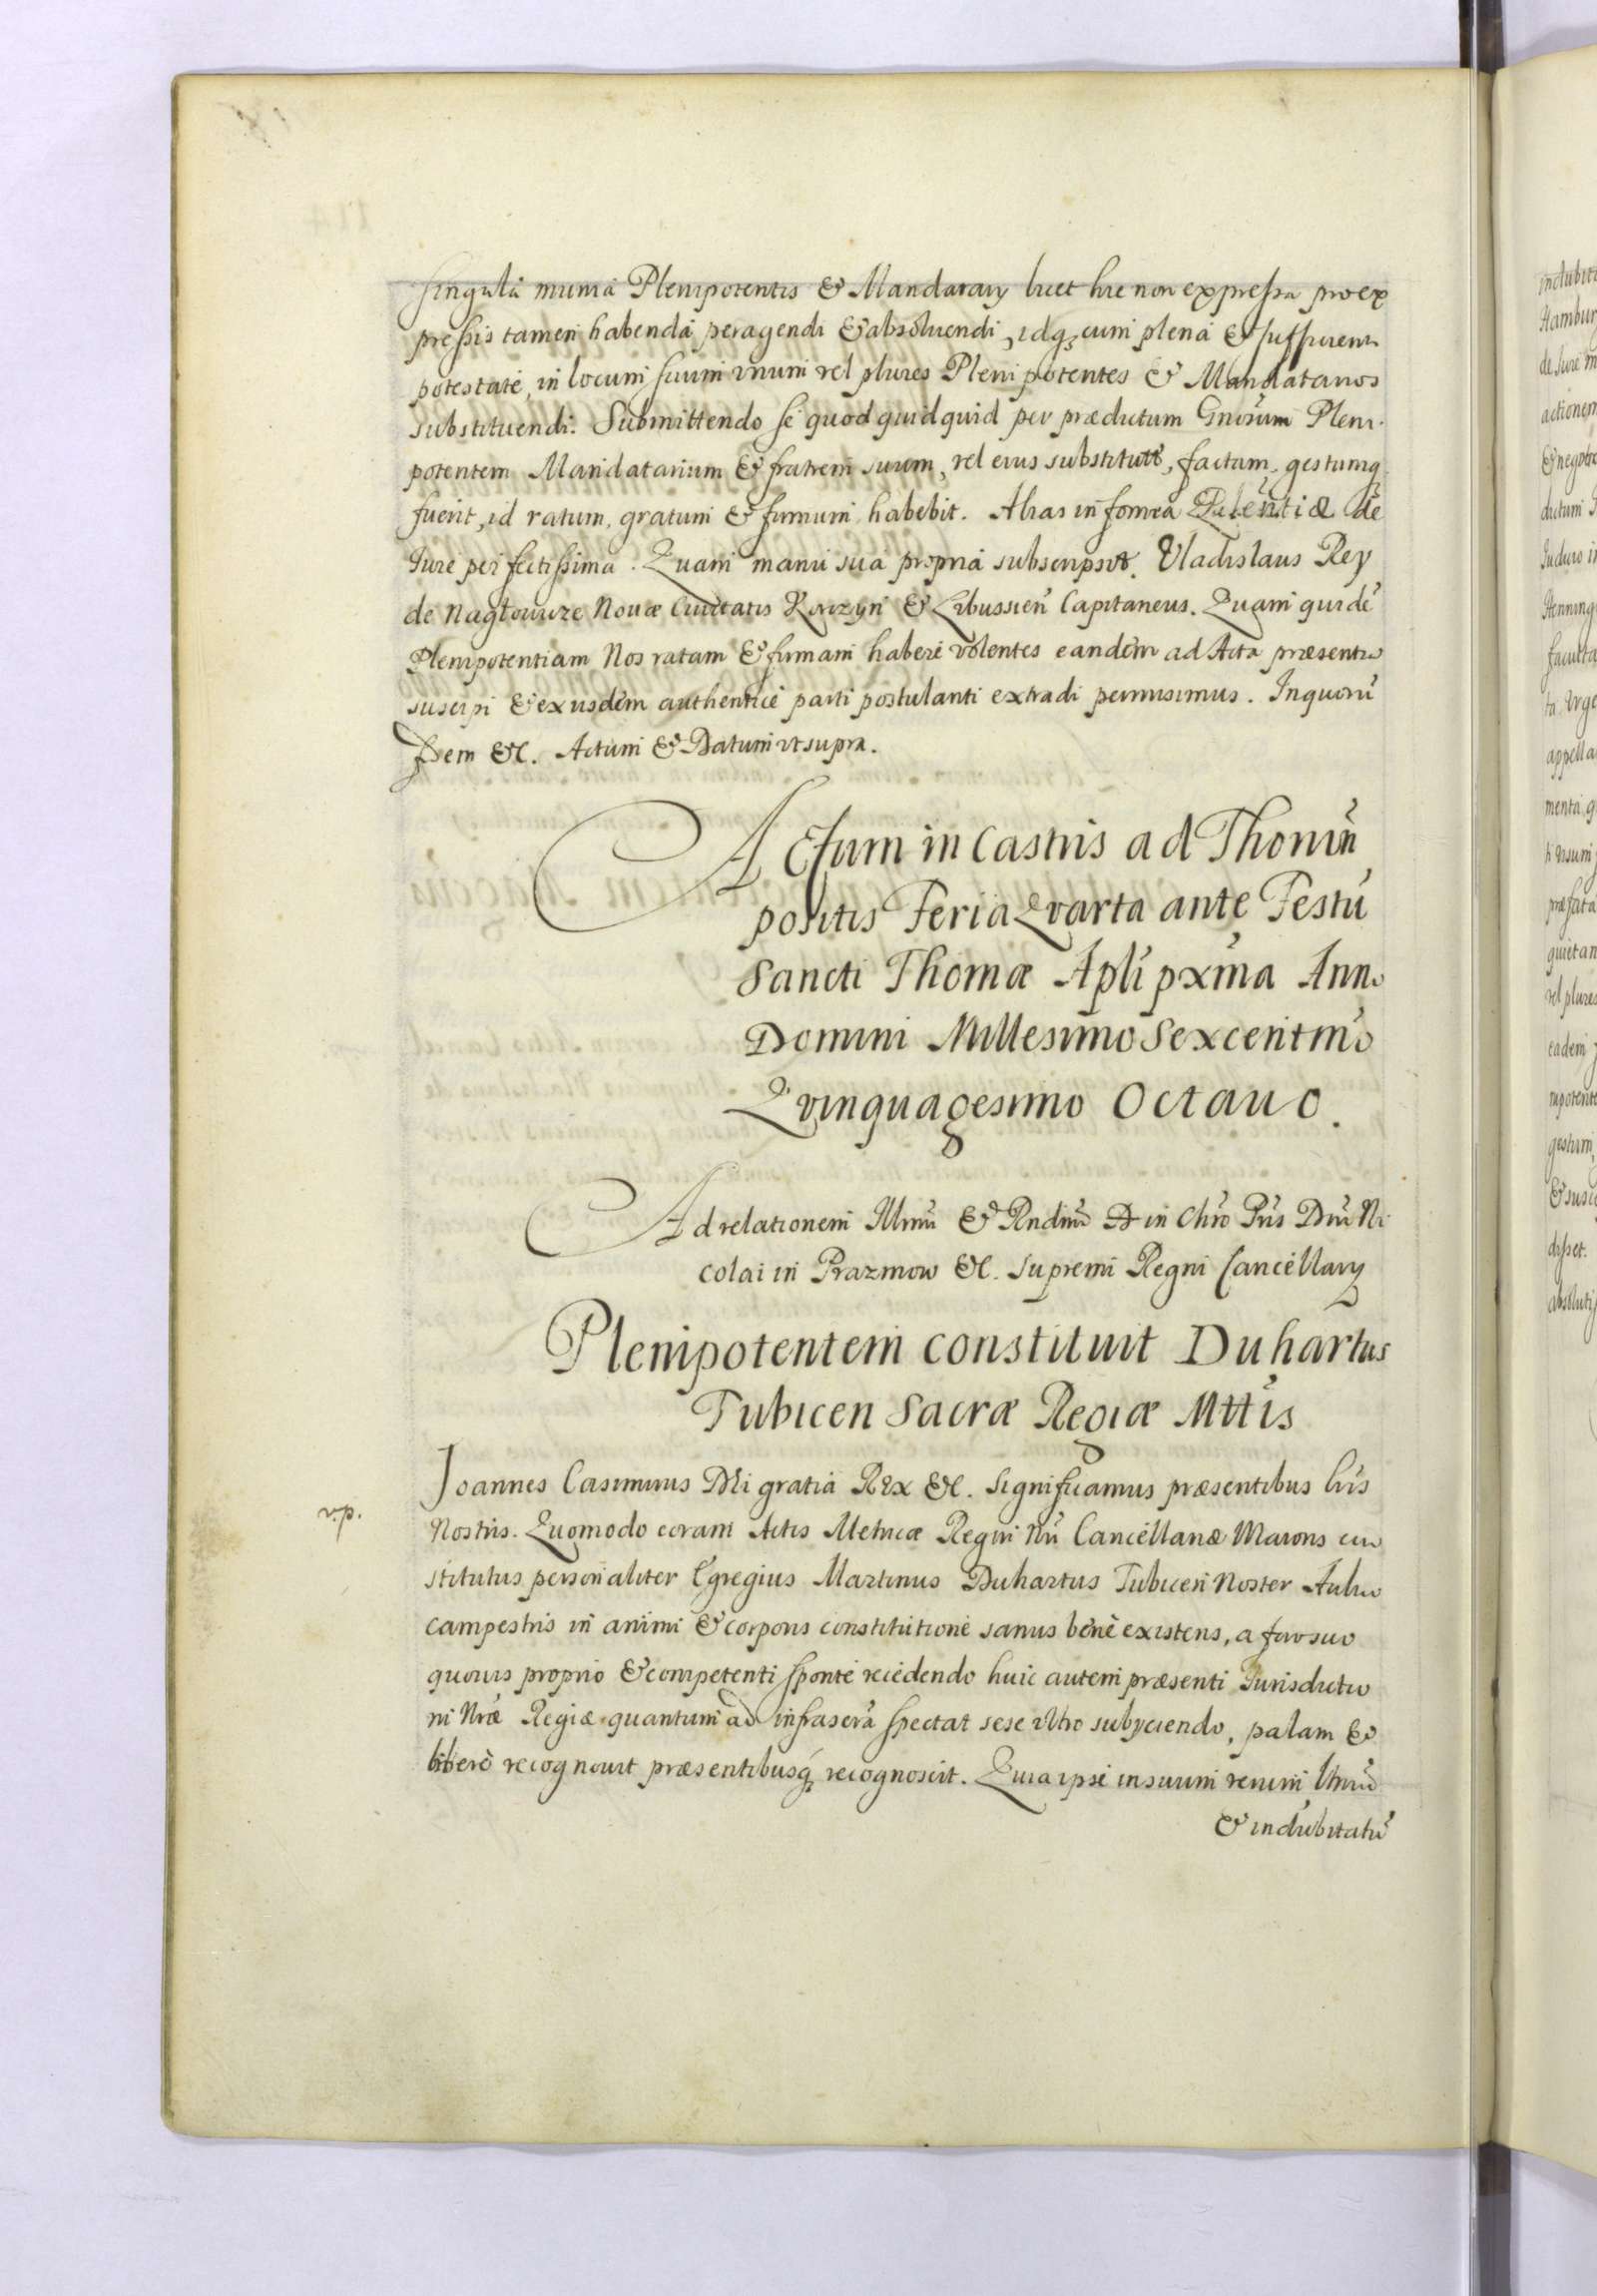 singula munia Plenipotentis & Mandatarij licet hic non expressa pro ex
pressis tamen habenda peragendi & absoluendi, idq; cum plena & sufficienti
potestate, in locum suum vnum vel plures Plenipotentes & Mandatarios
substituendi. Submittendo se quod quidquid per prædictum Gnosum Pleni-
potentem Mandatarium & fratrem suum, vel eius substitute, factum, gestumq;
fuerit, id ratum, gratum & firmum habebit. Alias in forma de
Jure perfectissima. Quam manu sua propria subscripsit. Vladislaus Rey
de Nagłowice Nouæ Ciuitatis Korczyn & Libussien Capitaneus. Quam quidē
Plenipotentiam Nos ratam & firmam habere volentes eandem ad Acta præsentia
suscipi & ex ijsdem authenticè parti postulanti extradi permisimus. In quorū
fidem &c. Actum & Datum vt supra.
Actum in Castris ad Thorun
positis Feria Qvarta ante Festū
Sancti Thomæ Apli pxma Anno
Domini Millesimo Sexcentmo
Qvinquagesimo Octauo.
Ad relationem Illmi & Rndmi D in Chro Pris Dni Ni
colai in Prazmow &c. Supremi Regni Cancellarij
Plenipotentem constituit Duhartus
Tubicen Sacræ Regiæ Mttis
Joannes Casimirus Dei gratia Rex &c. Significamus præsentibus Lris
v.p.
Nostris. Quomodo coram Actis Metricæ Regni Nri Cancellariæ Maioris con
stitutus personaliter Egregius Martinus Duhartus Tubicen Noster Aulico
campestris in animi & corporis constitutione sanus benè existens, a foro suo
quouis proprio & competenti sponte recedendo huic autem præsenti Jurisdictio
ni Nræ Regiæ quantum ad infrascra spectat sese vltro subijciendo, palam &
liberè recognouit præsentibusq; recognoscit. Quia ipse in suum verum
& indubitatū